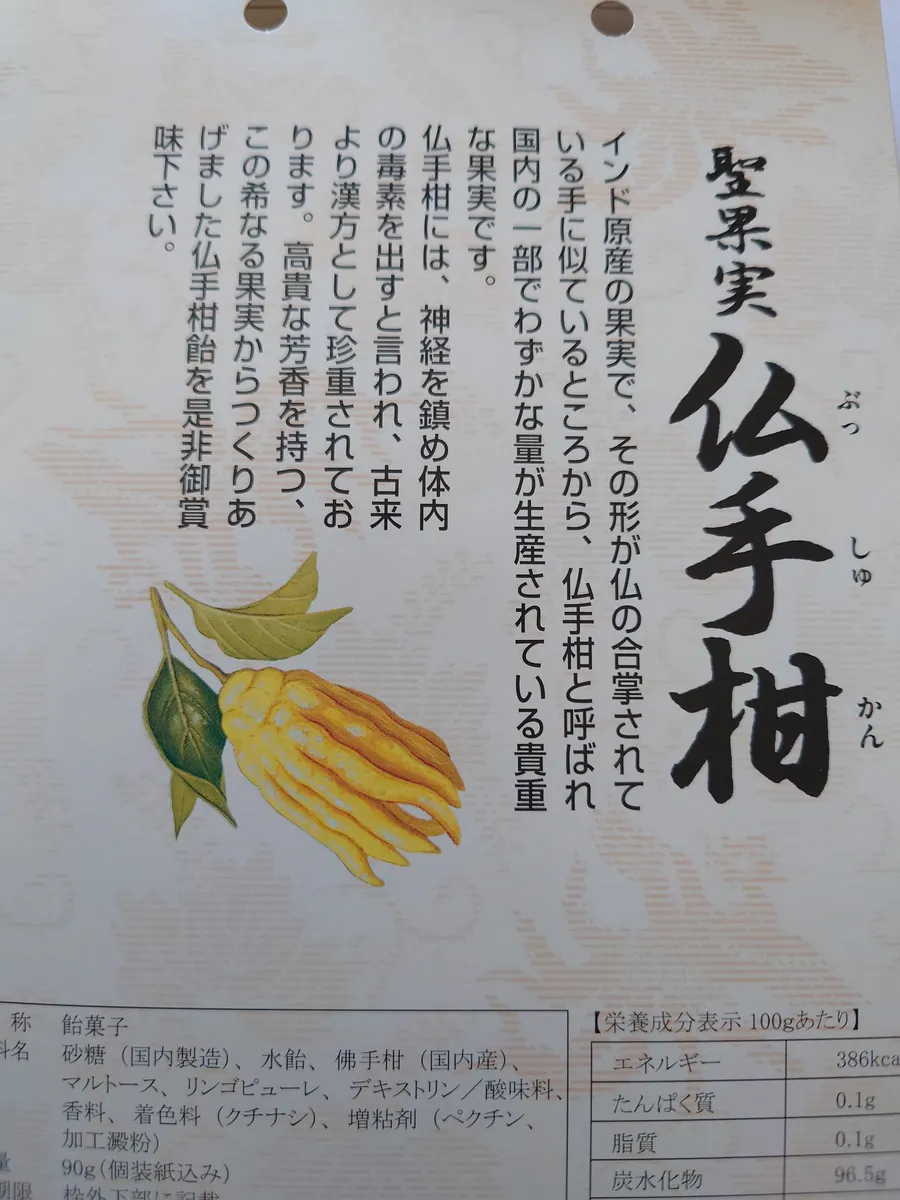 聖果実
仏手柑
ぶっ
しゅ
かん
インド原産の果実で、その形が仏の合掌されて
いる手に似ているところから、仏手柑と呼ばれ
国内の一部でわずかな量が生産されている貴重
な果実です。
仏手柑には、神経を鎮め体内
の毒素を出すと言われ、古来
より漢方として珍重されてお
ります。高貴な芳香を持つ、
この希なる果実からつくりあ
げました仏手柑飴を是非御賞
味下さい。
称 飴菓子
料名 砂糖（国内製造）、水飴、佛手柑（国内産）、
マルトース、リンゴピューレ、デキストリン／酸味料、
香料、着色料（クチナシ）、増粘剤（ペクチン、
加工澱粉）
量 90g（個装紙込み）
期限 枠外下部に記載
【栄養成分表示 100gあたり】
エネルギー 386kca
たんぱく質 0.1g
脂質 0.1g
炭水化物 96.5g